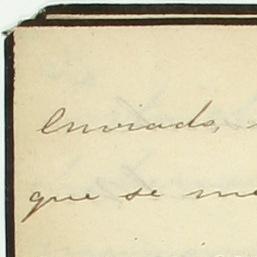 enviado,
que se me